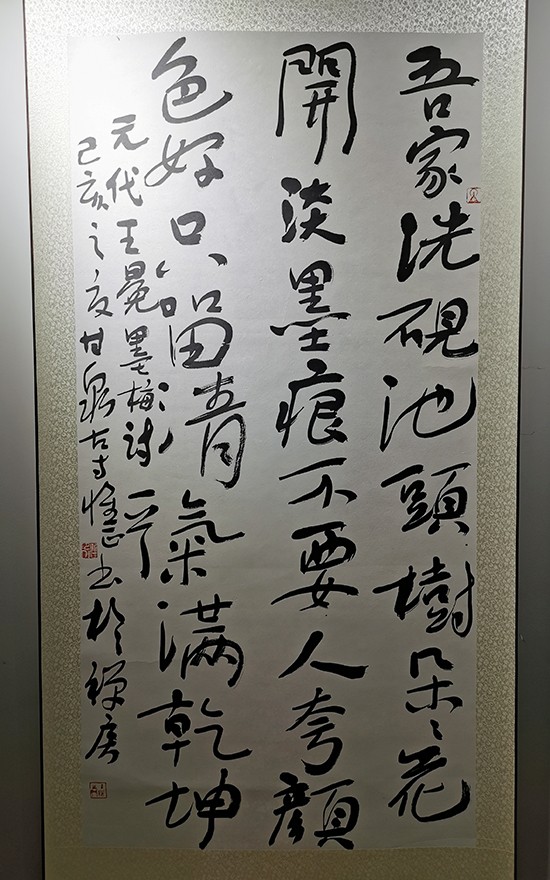 吾家洗硯池頭樹朵〻花
開淡墨痕不要人夸顏
色好只留青氣滿乾坤
元代王冕墨梅詩一首
己亥之夏甘泉古寺惟正书於禪房